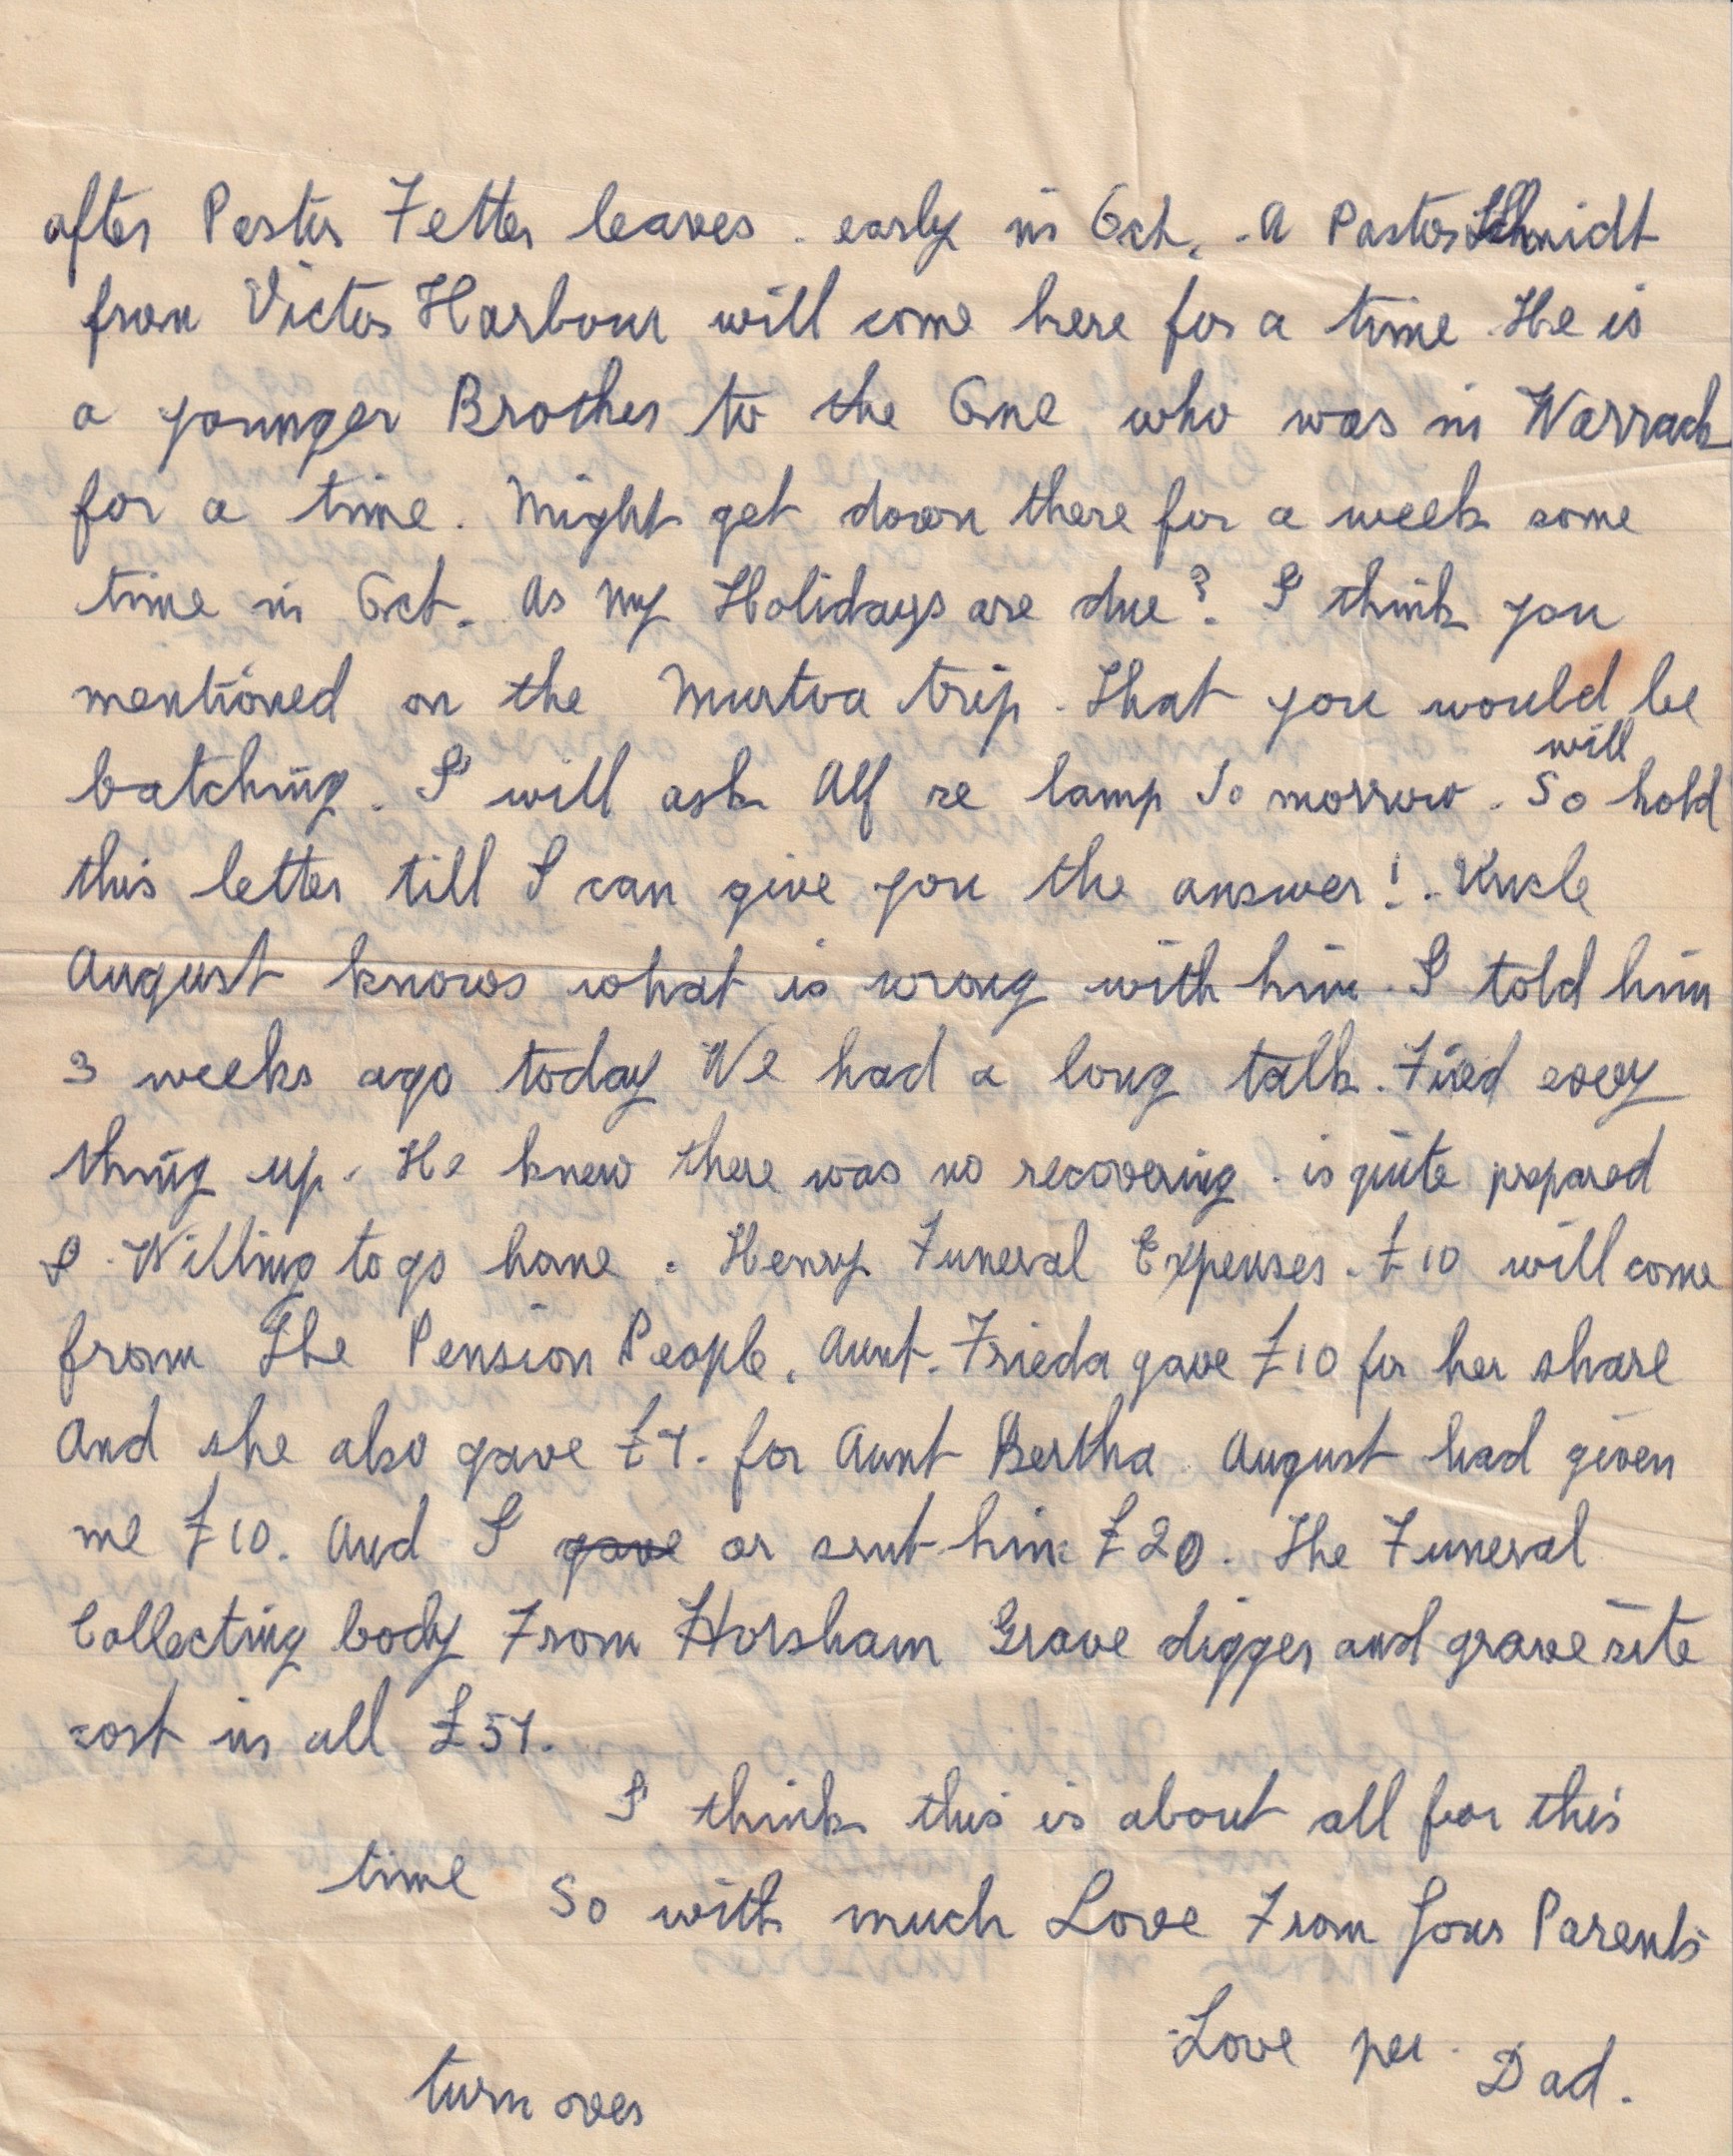 after Pastor Fetter leaves. early in Oct. . A Pastor Schmidt
from Victor Harbour will come here for a time. He is
a younger Brother to the One who was in Warrack
for a time. Might get down there for a week some
time in Oct. As my Holidays are due? I think you
mentioned on the Murtoa trip. That you would be
batching. I will ask Alf re lamp To morrow. So will hold
this letter till I can give you the answer!. Uncle
August knows what is wrong with him. I told him
3 weeks ago today We had a long talk. Fixed every
thing up. He knew there was no recovering. is quite prepared
& Willing to go home. Henry Funeral Expenses. £10 will come
from The Pension People. Aunt. Frieda gave £10 for her share
And she also gave £7. for Aunt Bertha. August had given
me £10. And I gave or sent him £20. The Funeral
Collecting body From Horsham Grave digger and grave site
cost in all £57.
I think this is about all for this
time So with much Love From Your Parents
Love per. Dad.
turn over